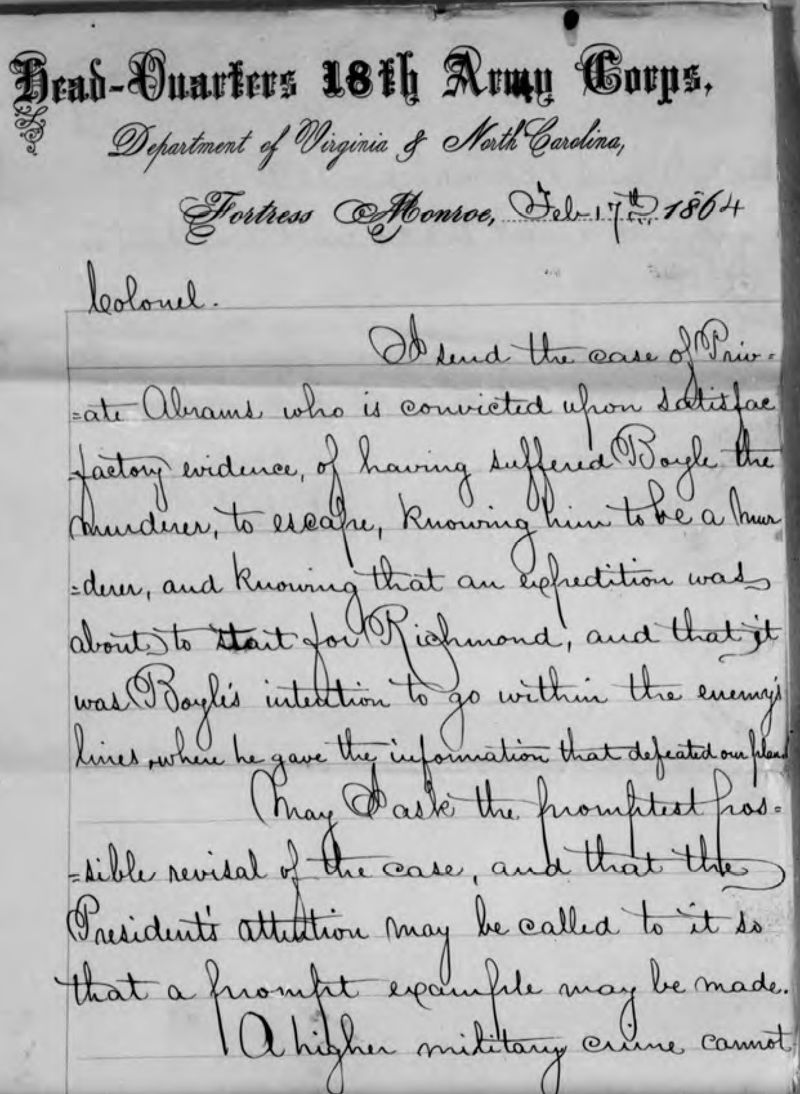 Head-Quarters 18th Army Corps,
Department of Virginia & North Carolina,
Fortress Monroe, Feb 17th 1864
Colonel.
I send the case of Priv=
=ate Abrams who is convicted upon satisfac
factory evidence, of having suffered Boyle the
murderer, to escape, knowing him to be a mur
=derer, and knowing that an expedition was
about to start for Richmond, and that it
was Boyle's intention to go within the enemy's
lines, where he gave the information that defeated our plans
May I ask the promptest pos=
=sible revisal of the case, and that the
President's attention may be called to it so
that a prompt example may be made.
A higher military crime cannot